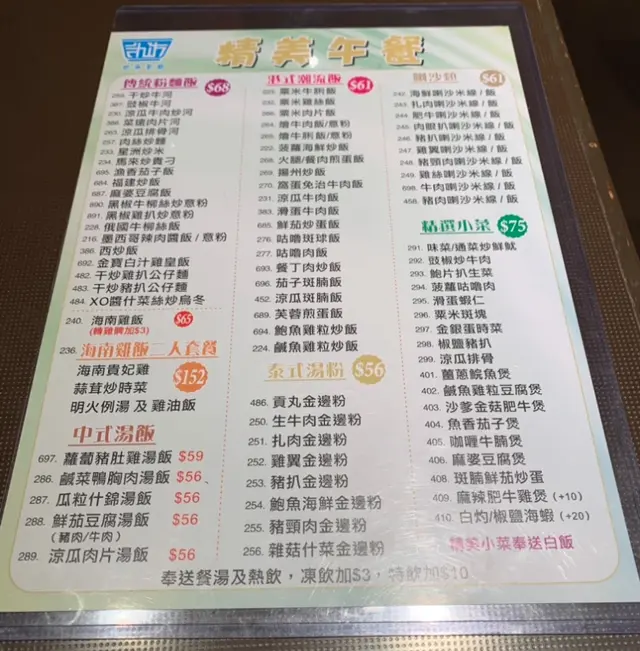 精美午餐
傳統粉麵飯 $68
干炒牛河
豉椒牛河
230. 涼瓜牛肉炒河
菜遠肉片河
263. 涼瓜排骨河
257. 肉絲炒麵
233. 星洲炒米
234. 馬來炒貴刁
695. 漁香茄子飯
684. 福建炒飯
687. 麻婆豆腐飯
890. 黑椒牛柳絲炒意粉
891. 黑椒雞扒炒意粉
228. 俄國牛柳絲飯
216. 墨西哥辣肉醬飯 / 意粉
386. 西炒飯
692. 金寶白汁雞皇飯
482. 干炒雞扒公仔麵
483. 干炒豬扒公仔麵
484. XO醬什菜絲炒烏冬
240. 海南雞飯 $65
(轉雞髀加$3)
236. 海南雞飯二人套餐
海南貴妃雞
蒜茸炒時菜
明火例湯 及 雞油飯
$152
中式湯飯
697. 蘿蔔豬肚雞湯飯 $59
286. 鹹菜鴨胸肉湯飯 $56
287. 瓜粒什錦湯飯 $56
288. 鮮茄豆腐湯飯 $56
(豬肉/牛肉)
289. 涼瓜肉片湯飯 $56
港式潮流飯 $61
粟米牛脷飯
232. 粟米雞絲飯
粟米肉片飯
264. 燴牛肉飯/意粉
265. 燴牛脷飯/意粉
222. 菠蘿海鮮炒飯
268. 火腿/餐肉煎蛋飯
269. 揚州炒飯
270. 窩蛋免治牛肉飯
231. 涼瓜牛肉飯
383. 滑蛋牛肉飯
685. 鮮茄炒蛋飯
276. 咕嚕斑球飯
277. 咕嚕肉飯
693. 餐丁肉炒飯
696. 茄子斑腩飯
452. 涼瓜斑腩飯
689. 芙蓉煎蛋飯
694. 鮑魚雞粒炒飯
224. 鹹魚雞粒炒飯
泰式湯粉 $56
486. 貢丸金邊粉
250. 生牛肉金邊粉
251. 扎肉金邊粉
252. 雞翼金邊粉
253. 豬扒金邊粉
254. 鮑魚海鮮金邊粉
255. 豬頸肉金邊粉
256. 雜菇什菜金邊粉
喇沙類 $61
242. 海鮮喇沙米線 / 飯
243. 扎肉喇沙米線 / 飯
244. 肥牛喇沙米線 / 飯
245. 肉眼扒喇沙米線 / 飯
246. 豬扒喇沙米線 / 飯
247. 雞翼喇沙米線 / 飯
248. 豬頸肉喇沙米線 / 飯
249. 雞絲喇沙米線 / 飯
698. 牛肉喇沙米線 / 飯
458. 豬肉喇沙米線 / 飯
精選小菜 $75
291. 味菜/過菜炒鮮魷
292. 豉椒炒牛肉
293. 鮑片扒生菜
294. 菠蘿咕嚕肉
295. 滑蛋蝦仁
296. 粟米斑塊
297. 金銀蛋時菜
298. 椒鹽豬扒
299. 涼瓜排骨
401. 薑蔥鯇魚煲
402. 鹹魚雞粒豆腐煲
403. 沙爹金菇肥牛煲
404. 魚香茄子煲
405. 咖喱牛腩煲
406. 麻婆豆腐煲
408. 斑腩鮮茄炒蛋
409. 麻辣肥牛雞煲 (+10)
410. 白灼/椒鹽海蝦 (+20)
精美小菜奉送白飯
奉送餐湯及熱飲，凍飲加$3，特飲加$10